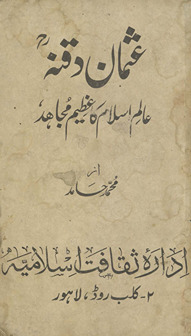 عثمان دقنہؒ
عالمِ اسلام کا عظیم مجاہد
از
محمد حامد
ادارۂ ثقافت اسلامیہ
۲-کلب روڈ، لاہور